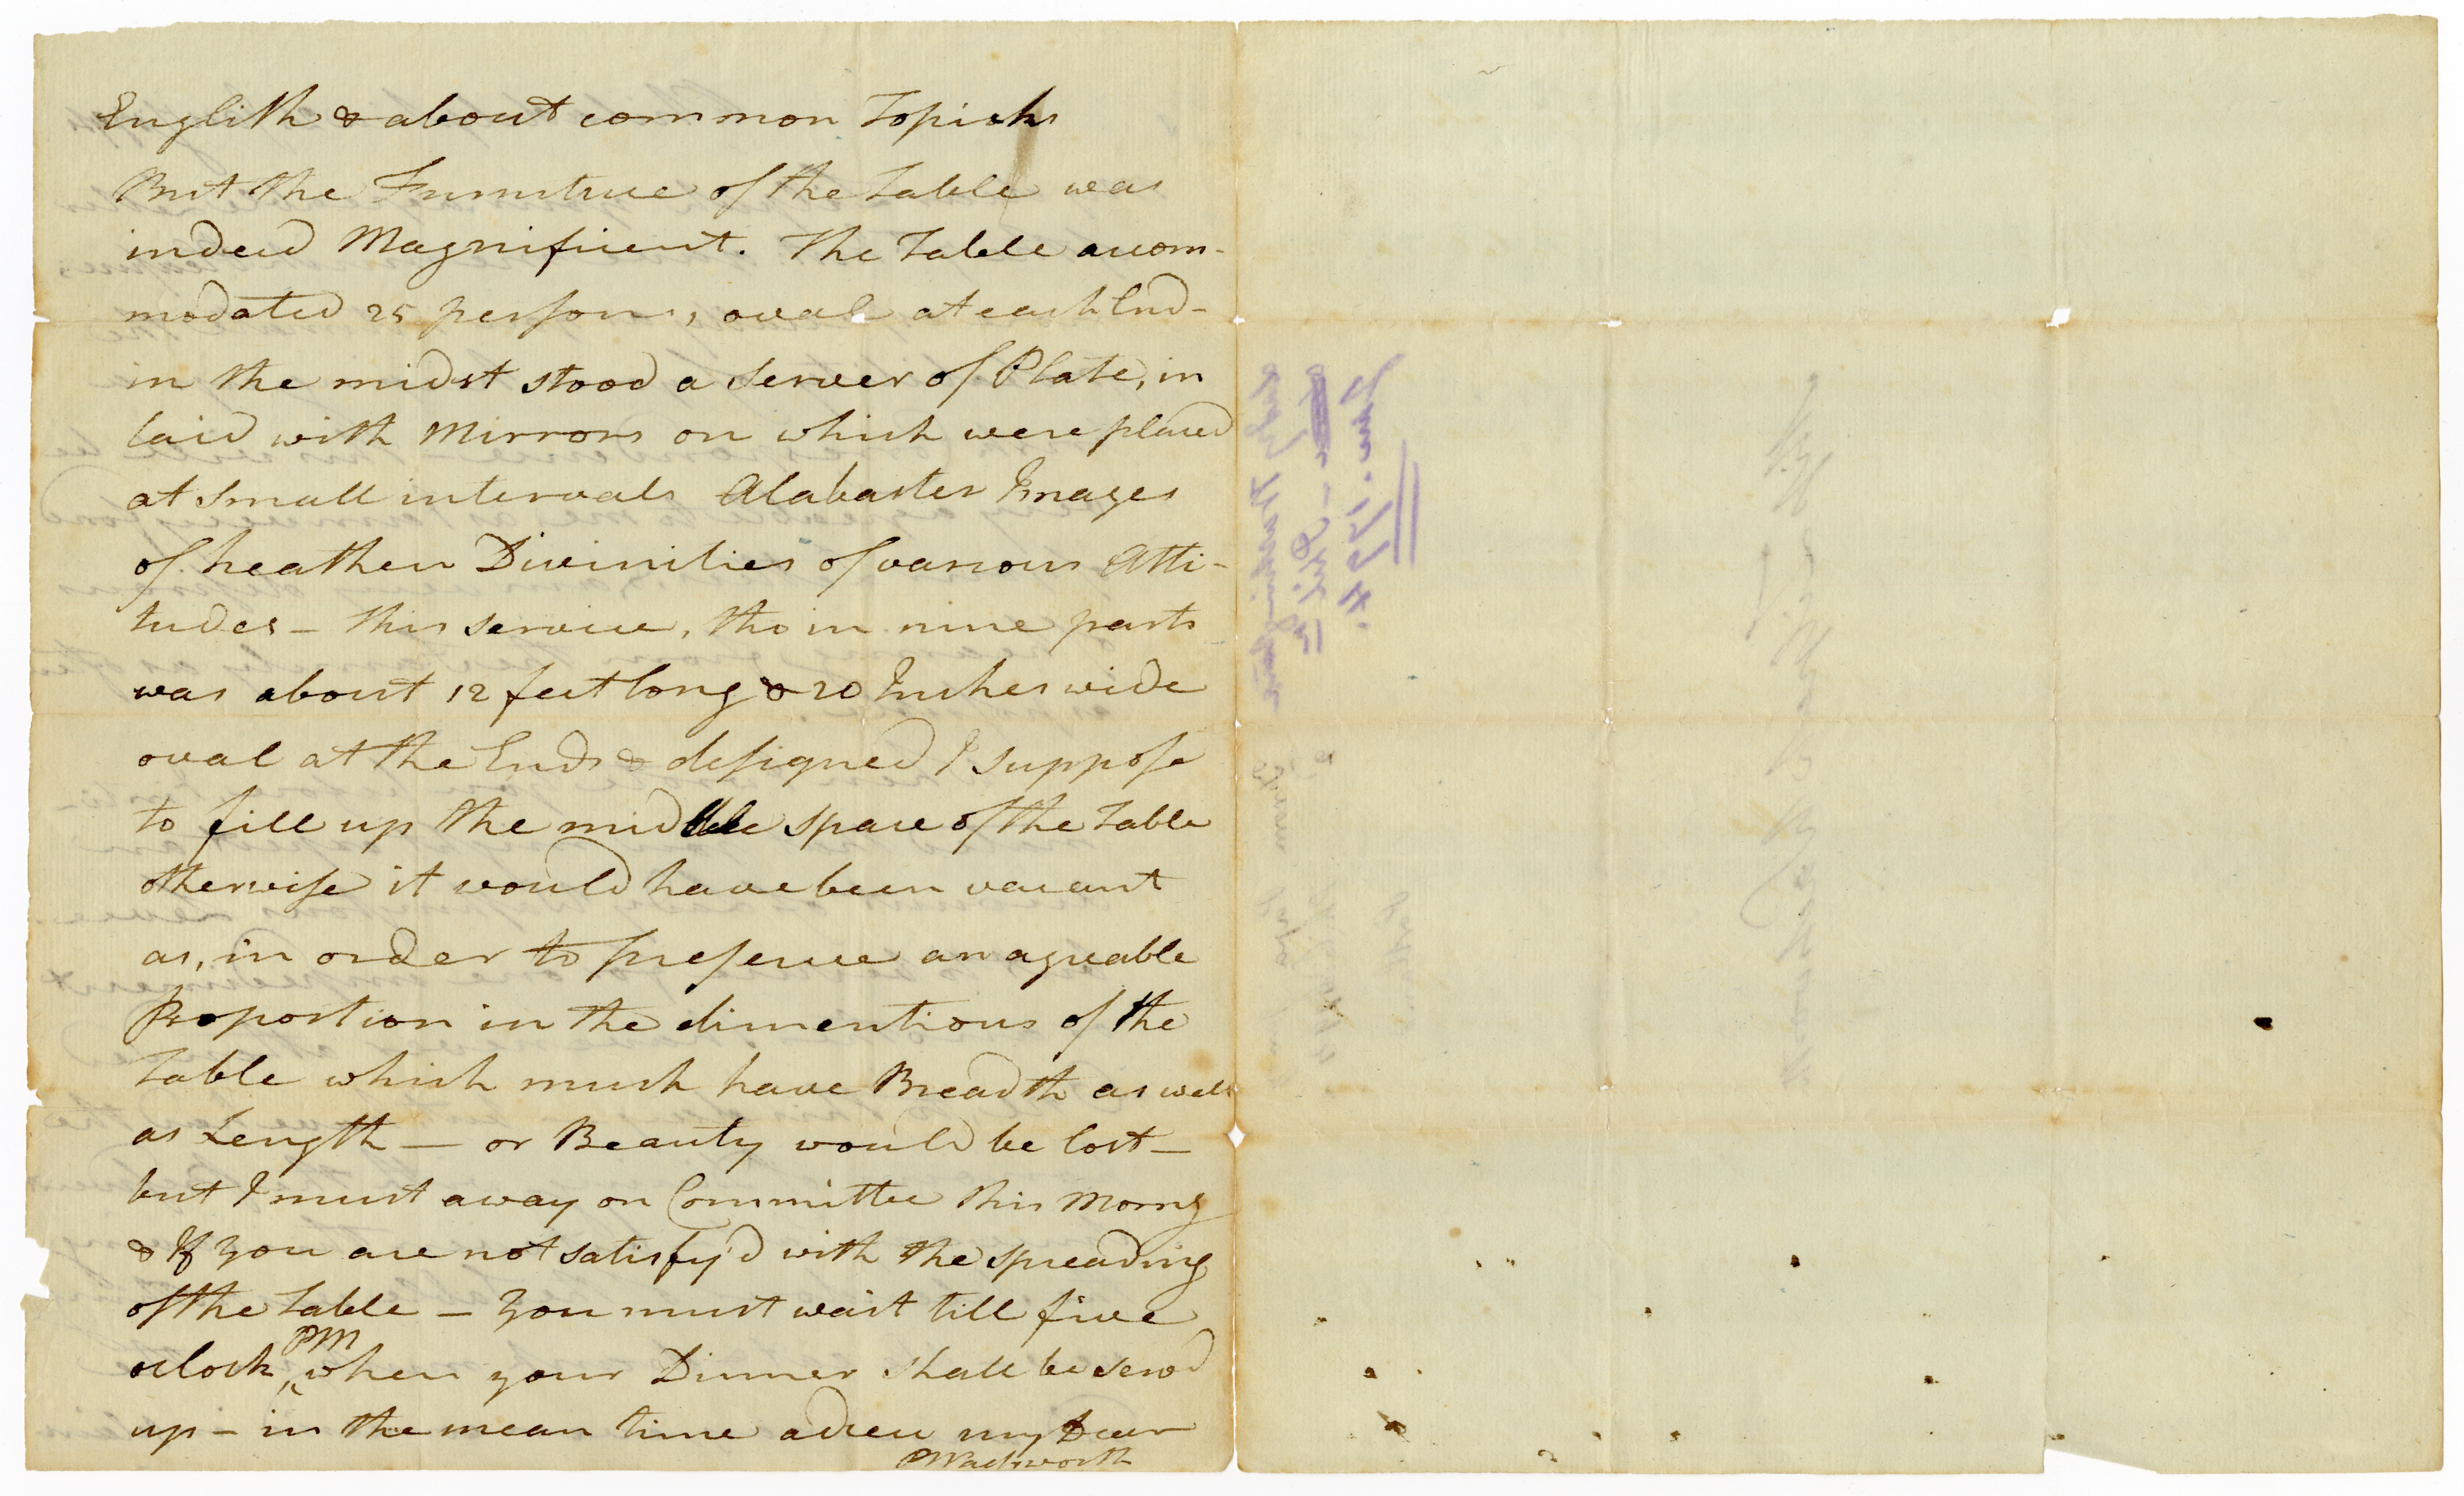 English & about common Topicks
But the Furniture of the Table was
indeed Magnificent. The Table accom-
modated 25 persons, oval at each End-
in the midst stood a Server of Plate, in
laid with Mirrors on which were placed
at small intervals Alabaster Images
of heathen Divinities of various Atti-
tudes - this service, tho in nine parts
was about 12 feet long & 20 Inches wide
oval at the Ends & designed I suppose
to fill up the middle space of the Table
otherwise it would have been vacant
as, in order to preserve an agreable
Proportion in the dimentions of the
Table which much have Breadth as well
as Length — or Beauty would be lost —
but I must away on Committee this Morng
& If you are not satisfy'd with the spreading
of the Table — you must wait till five
oclock, PM when your Dinner shall be servd
up - in the mean time adieu my Dear
PWadsworth